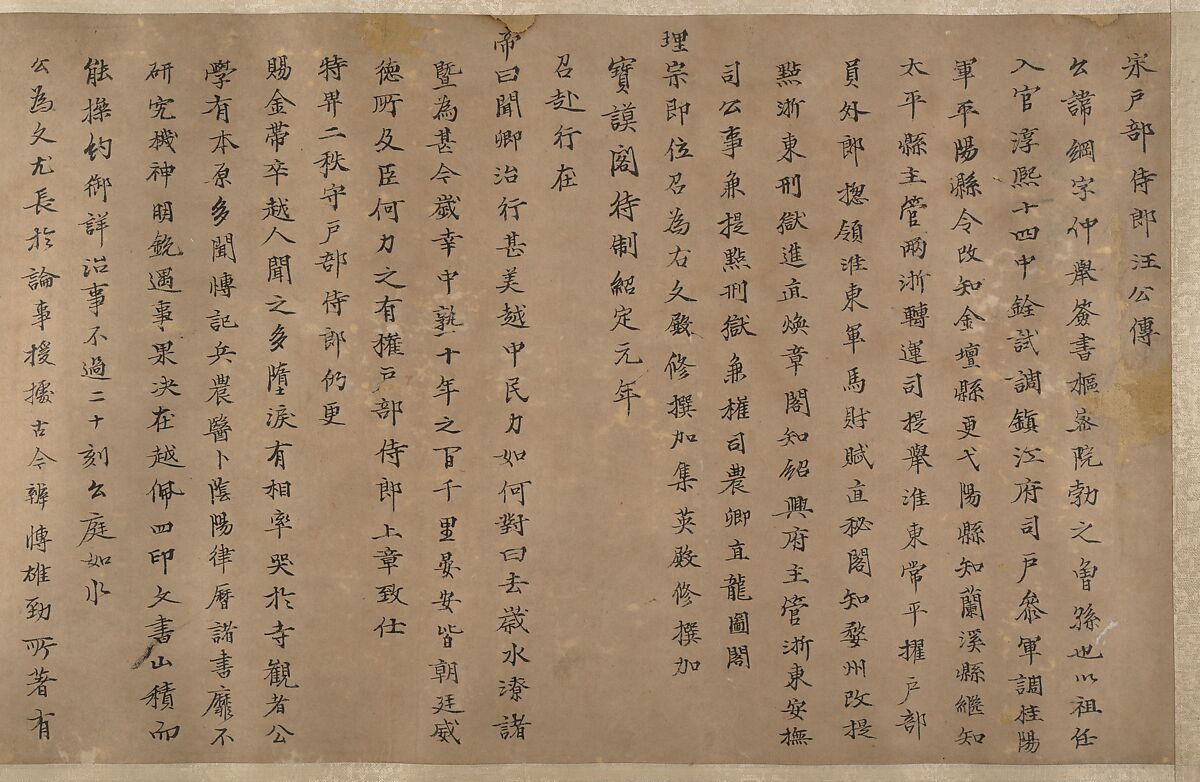 宋戶部侍郎汪公傳
公諱綱字仲舉簽書樞密院勃之曾孫也以祖任
入官淳熙十四中銓試調鎮江府司戶叅軍調桂陽
軍平陽縣令改知金壇縣更弋陽縣知蘭溪縣繼知
太平縣主管兩浙轉運司提舉淮東常平擢戶部
員外郎揔領淮東軍馬財賦直秘閣知婺州改提
點浙東刑獄進直煥章閣知紹興府主管浙東安撫
司公事兼提點刑獄兼權司農卿直龍圖閣
理宗即位召為右文殿修撰加集英殿修撰加
寶謨閣待制紹定元年
召赴行在
帝曰聞卿治行甚美越中民力如何對曰去歲水潦諸
暨為甚今歲幸中孰十年之間千里晏安皆朝廷威
德所及臣何力之有權戶部侍郎上章致仕
特畀二秩守戶部侍郎仍更
賜金帶卒越人聞之多墮淚有相率哭於寺觀者公
學有本原多聞博記兵農醫卜陰陽律曆諸書靡不
研究機神明銳遇事果決在越佩四印文書山積而
能操約御詳治事不過二十刻公庭如水
公為文尤長於論事援據古今辨博雄勁所著有